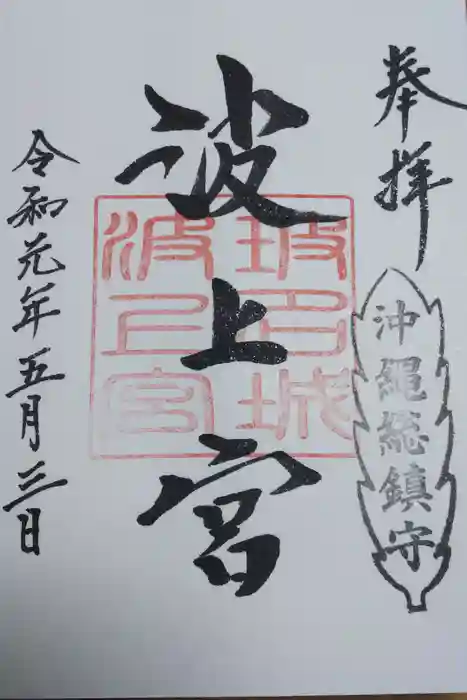 奉拝
沖縄総鎮守
波上宮
坡名城
波上宮
令和元年五月三日